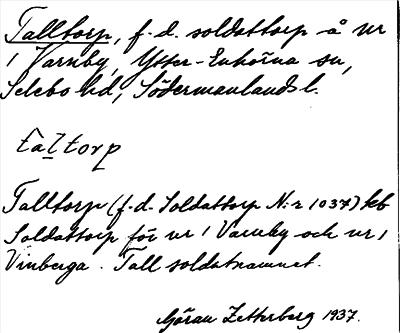 Talltorp, f.d. soldattorp å nr
1 Varnby, Ytter-Enhörna sn,
Selebo hd, Södermanlands l.
tàl̠torp
Talltorp (f.d. Soldattorp N:r 1037) kb
Soldattorp för nr 1 Varnby och nr 1
Vinberga. Tall soldatnamnet.
Göran Zetterberg 1937.